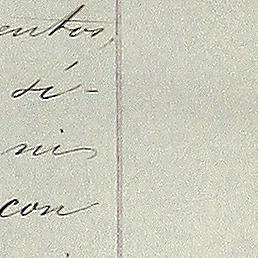 entos,
sí-
ni
con